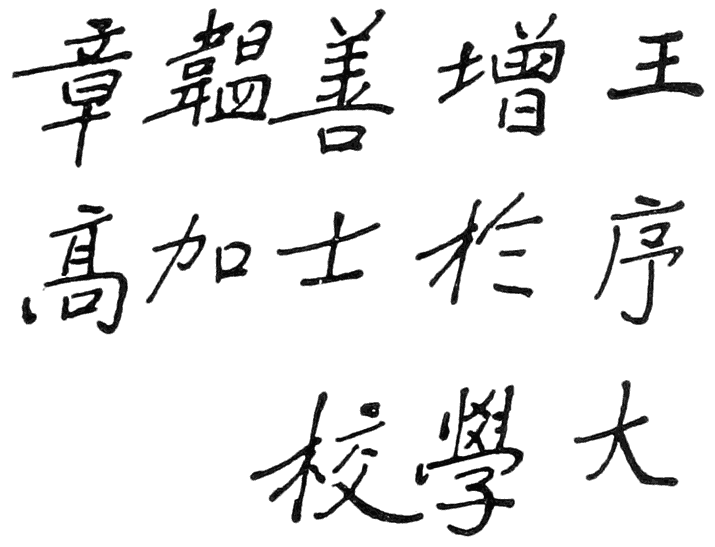 王增善韞章
序於士加高
大學校